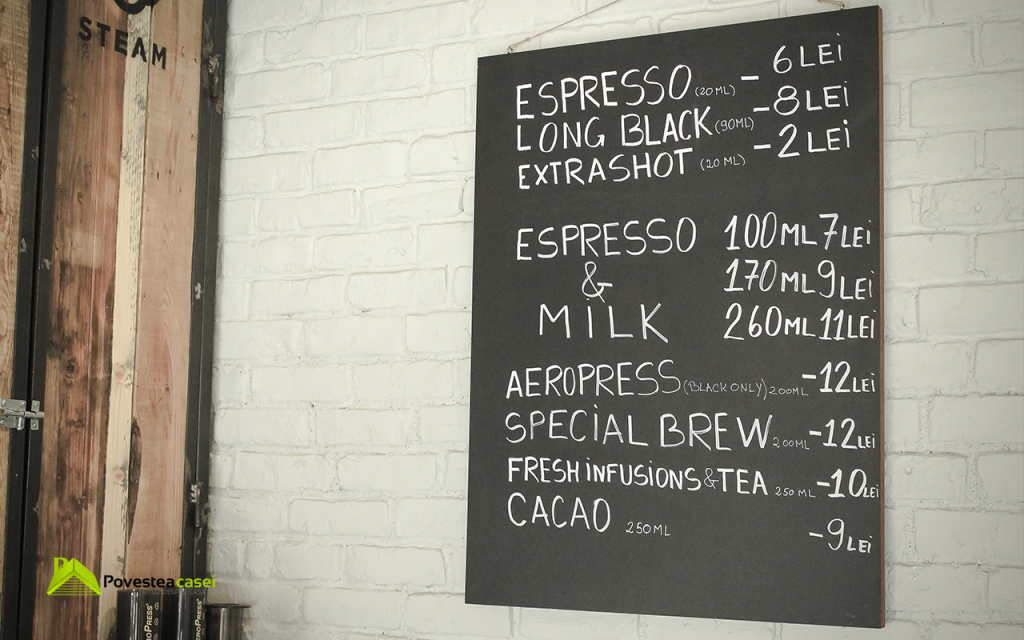 STEAM
ESPRESSO (20ML) - 6 LEi
LONG BLACK (90ML) - 8 LEi
EXTRASHOT (20 ML) - 2 LEi
ESPRESSO 100ML 7 LEi
& 170ML 9 LEi
MiLK 260ML 11 LEi
AEROPRESS (BLACK ONLY) 200ML -12 LEi
SPECiAL BREW 200ML -12 LEi
FRESH iNFUSiONS & TEA 250ML -10 LEi
CACAO 250ML -9 LEi
Povestea casei